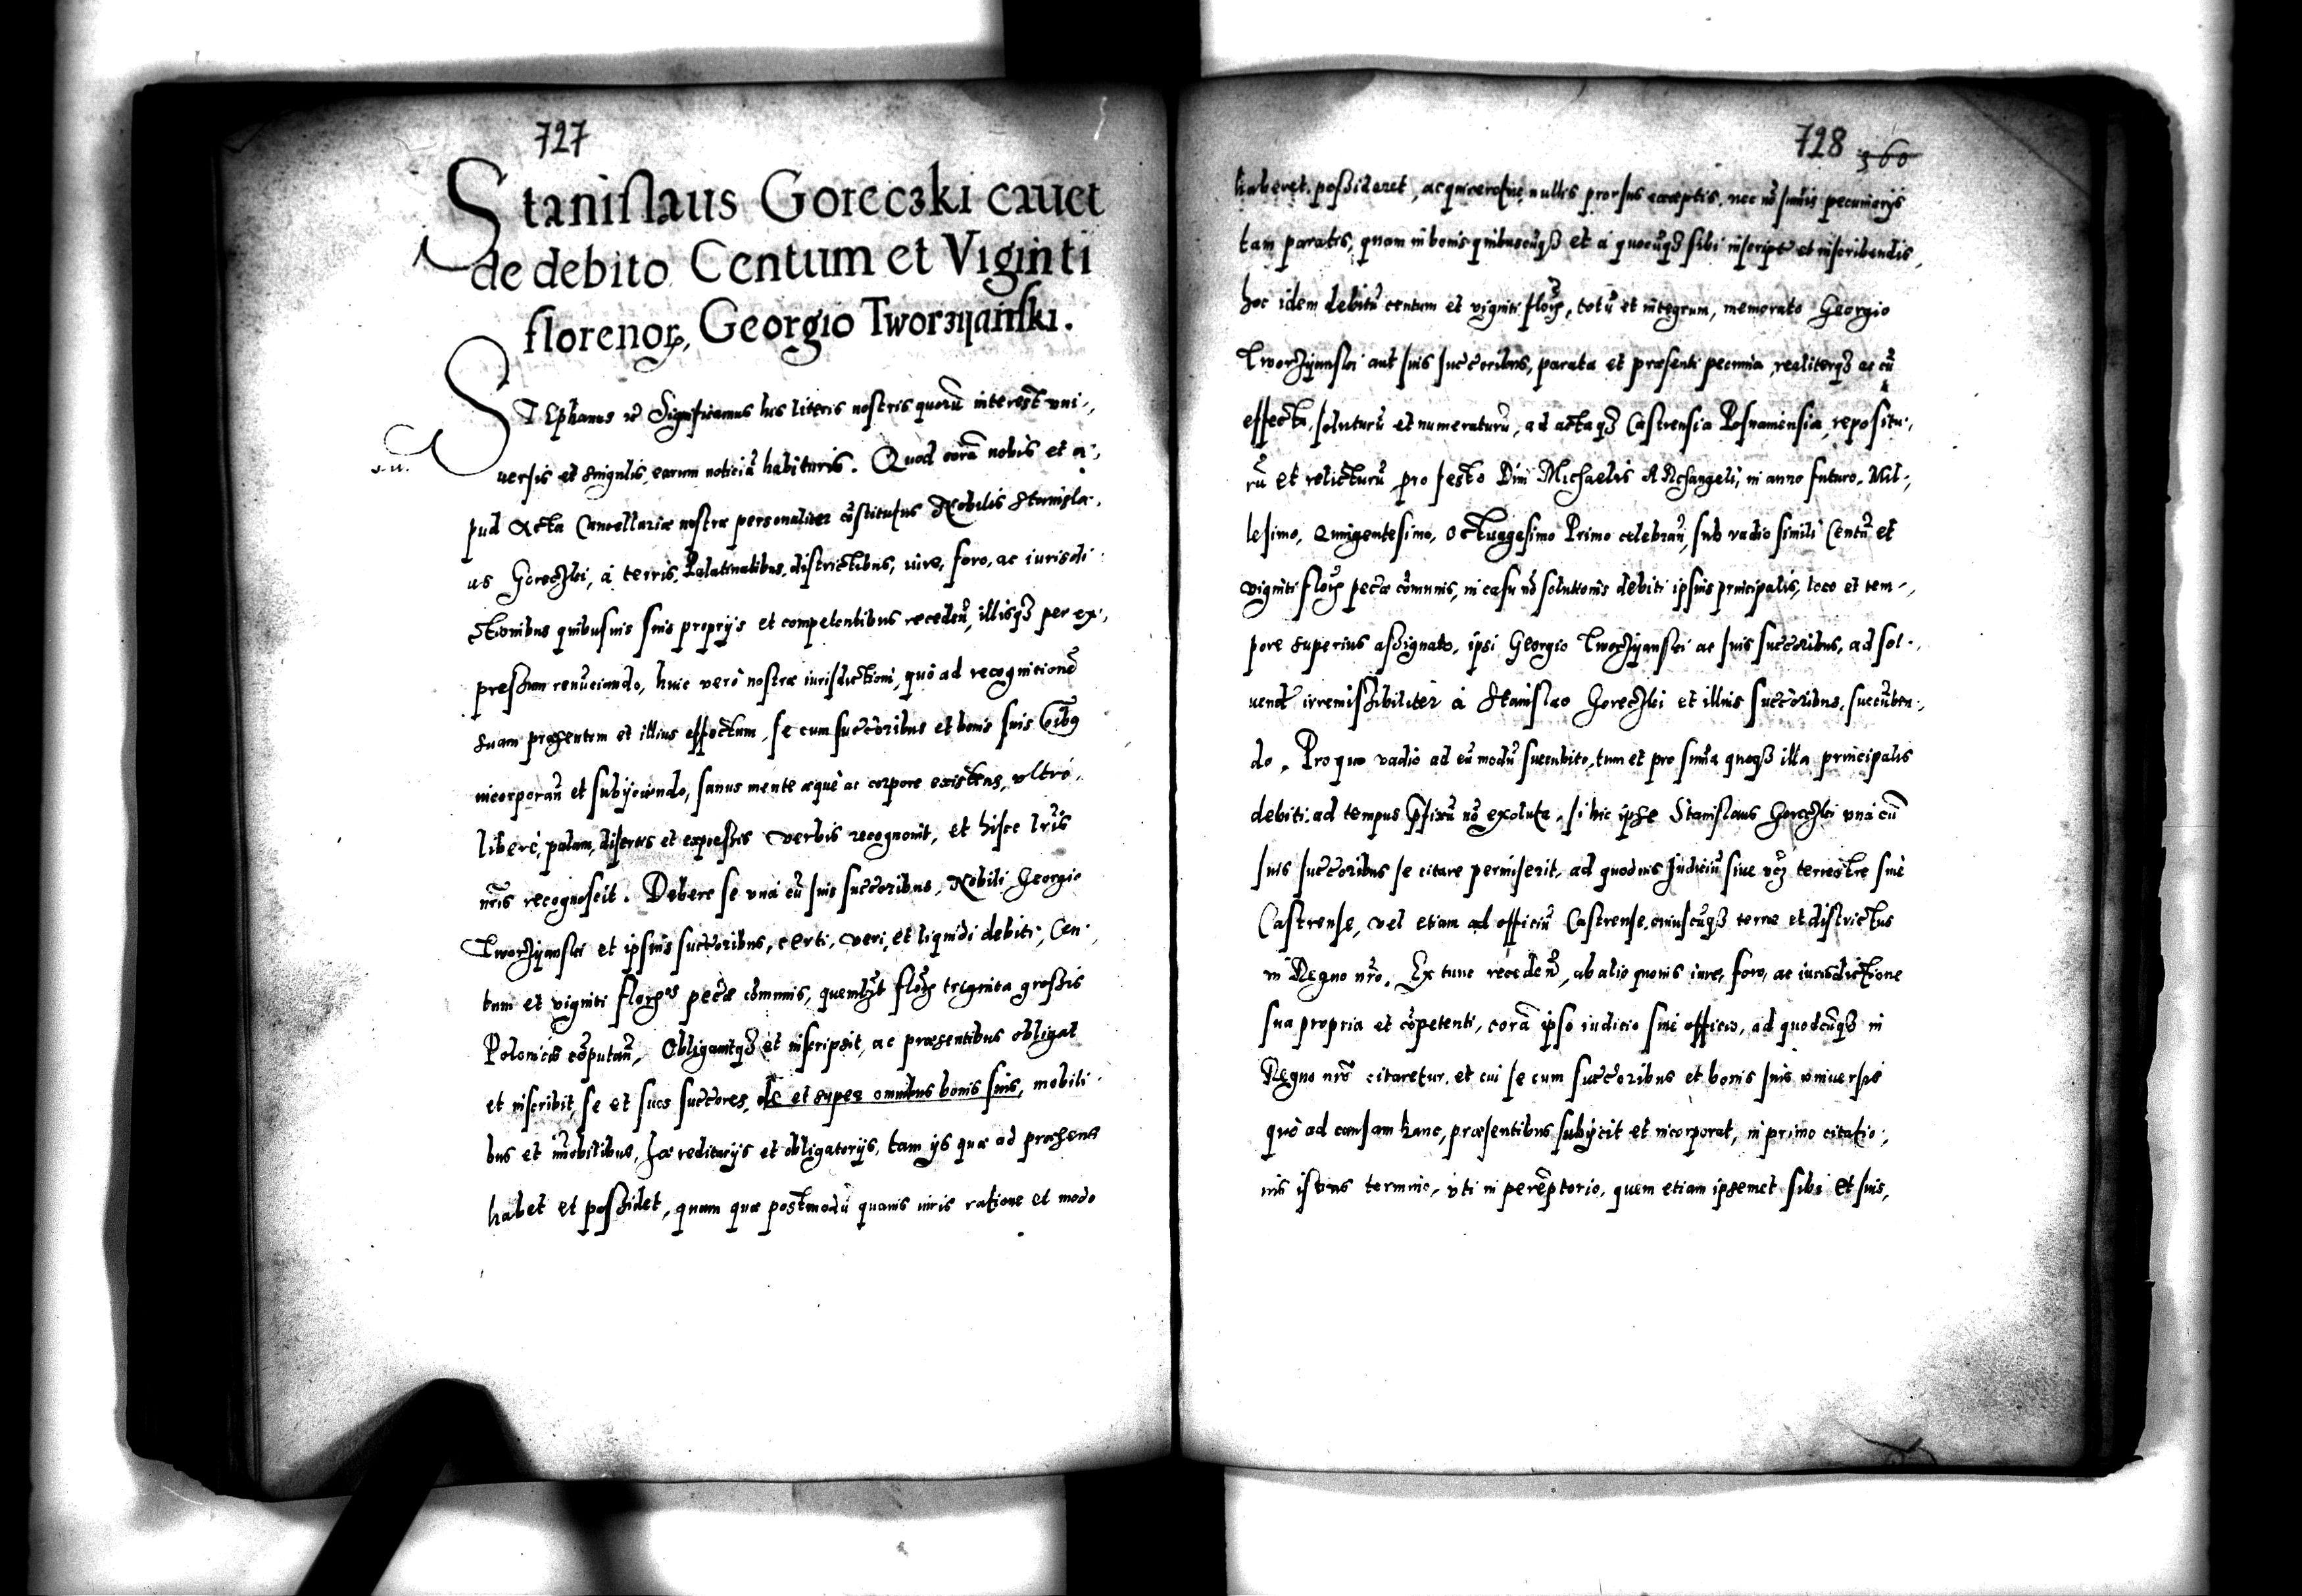 727
Stanislaus Goreczki cauet
de debito Centum et Viginti
florenoꝝ, Georgio Tworzÿanski.
STEphanus &c Significamus his literis nostris quorũ interest vni-,
uersis et singulis, earum noticiã habituris. Quod corã nobis et a-,
pud Acta Cancellariæ nostræ personaliter cõstitutus Nobilis Stanisla-,
us Goreczki, à terris, Palatinatibus, districtibus, iure, foro, ac iurisdi-
ctionibus quibusuis suis proprijs et competentibus recedeñ, illisqȝ per ex-,
pressum renũciando, huic verò nostræ iurisdictioni, quò ad recognitionẽ
suam præsentem et illius effectum, se cum succoribus et bonis suis oĩbꝯ
incorporañ et subijciendo, sanus mente æquè ac corpore existens, vltrò,
liberè, palam, disertis et expressis verbis recognouit, et hisce lr̃is
nr̃is recognoscit. Debere se vnà cũ suis succoribus, Nobili Georgio
Tworzÿanski et ipsius succoribus, certi, veri, et liquidi debiti, Cen-
tum et viginti floꝝ pecæ cõmunis, quemlibt floꝝ triginta grossis
Polonicis cõputañ, Obligauitqȝ et inscripsit, ac præsentibus obligat
et inscribit, se et suos succores, de et super omnibus bonis suis, mobili-
bus et imobilibus, hæreditarijs et obligatorijs, tam ijs quæ ad præsens
habet et possidet, quam quæ postmodũ quouis iuris ratione et modo
728 360
haberet, possideret, acquireretue, nullis prorsus exceptis, nec nõ sumis pecuniarijs
tam paratis, quam in bonis quibuscũqȝ et à quocũqȝ sibi inscriptis et inscribendis,
hoc idem debitũ centum et viginti floꝝ, totũ et integrum, memorato Georgio
Tworzÿanski aut suis succoribus, parata et præsenti pecunia, realiterqȝ ac cũ
effectu, soluturũ et numeraturũ, ad actaqȝ Castrensia Posnaniensia, repositu-,
rũ et relicturũ pro festo Diui Michaelis ARchangeli, in anno futuro, Mil-,
lesimo, Quingentesimo, Octuagesimo Primo celebrañ, sub vadio simili Centũ et
viginti floꝝ pecæ cõmunis, in casu nõ solutionis debiti ipsius principalis, loco et tem-,
pore superius assignato, ipsi Georgio Tworzÿanski ac suis succoribus, ad sol-,
uend irremissibiliter à Stanislao Goreczki et illius succoribus, succũben-,
do. Pro quo vadio ad eũ modũ succubito, tum et pro suma quoqȝ illa principalis
debiti, ad tempus p̃fixũ nõ exoluta, si hic ipse Stanislaus Goreczki vnà cũ
suis succoribus se citare permiserit, ad quoduis Judiciũ siue vcȝ terrestre siuè
Castrense, vel etiam ad officiũ Castrense, cuiuscũqȝ terræ et districtus
in Regno nr̃o. Ex tunc recedeñ, ab alio quouis iure, foro, ac iurisdictione
sua propria et cõpetenti, corã ipso iudicio siuè officio, ad quodcũqȝ in
Regno nr̃o citaretur, et cui se cum succoribus et bonis suis vniuersis
quò ad causam hanc, præsentibus subijcit et incorporat, in primo citatio-,
nis istius termino, vti in perẽptorio, quem etiam ipsemet sibi et suis,